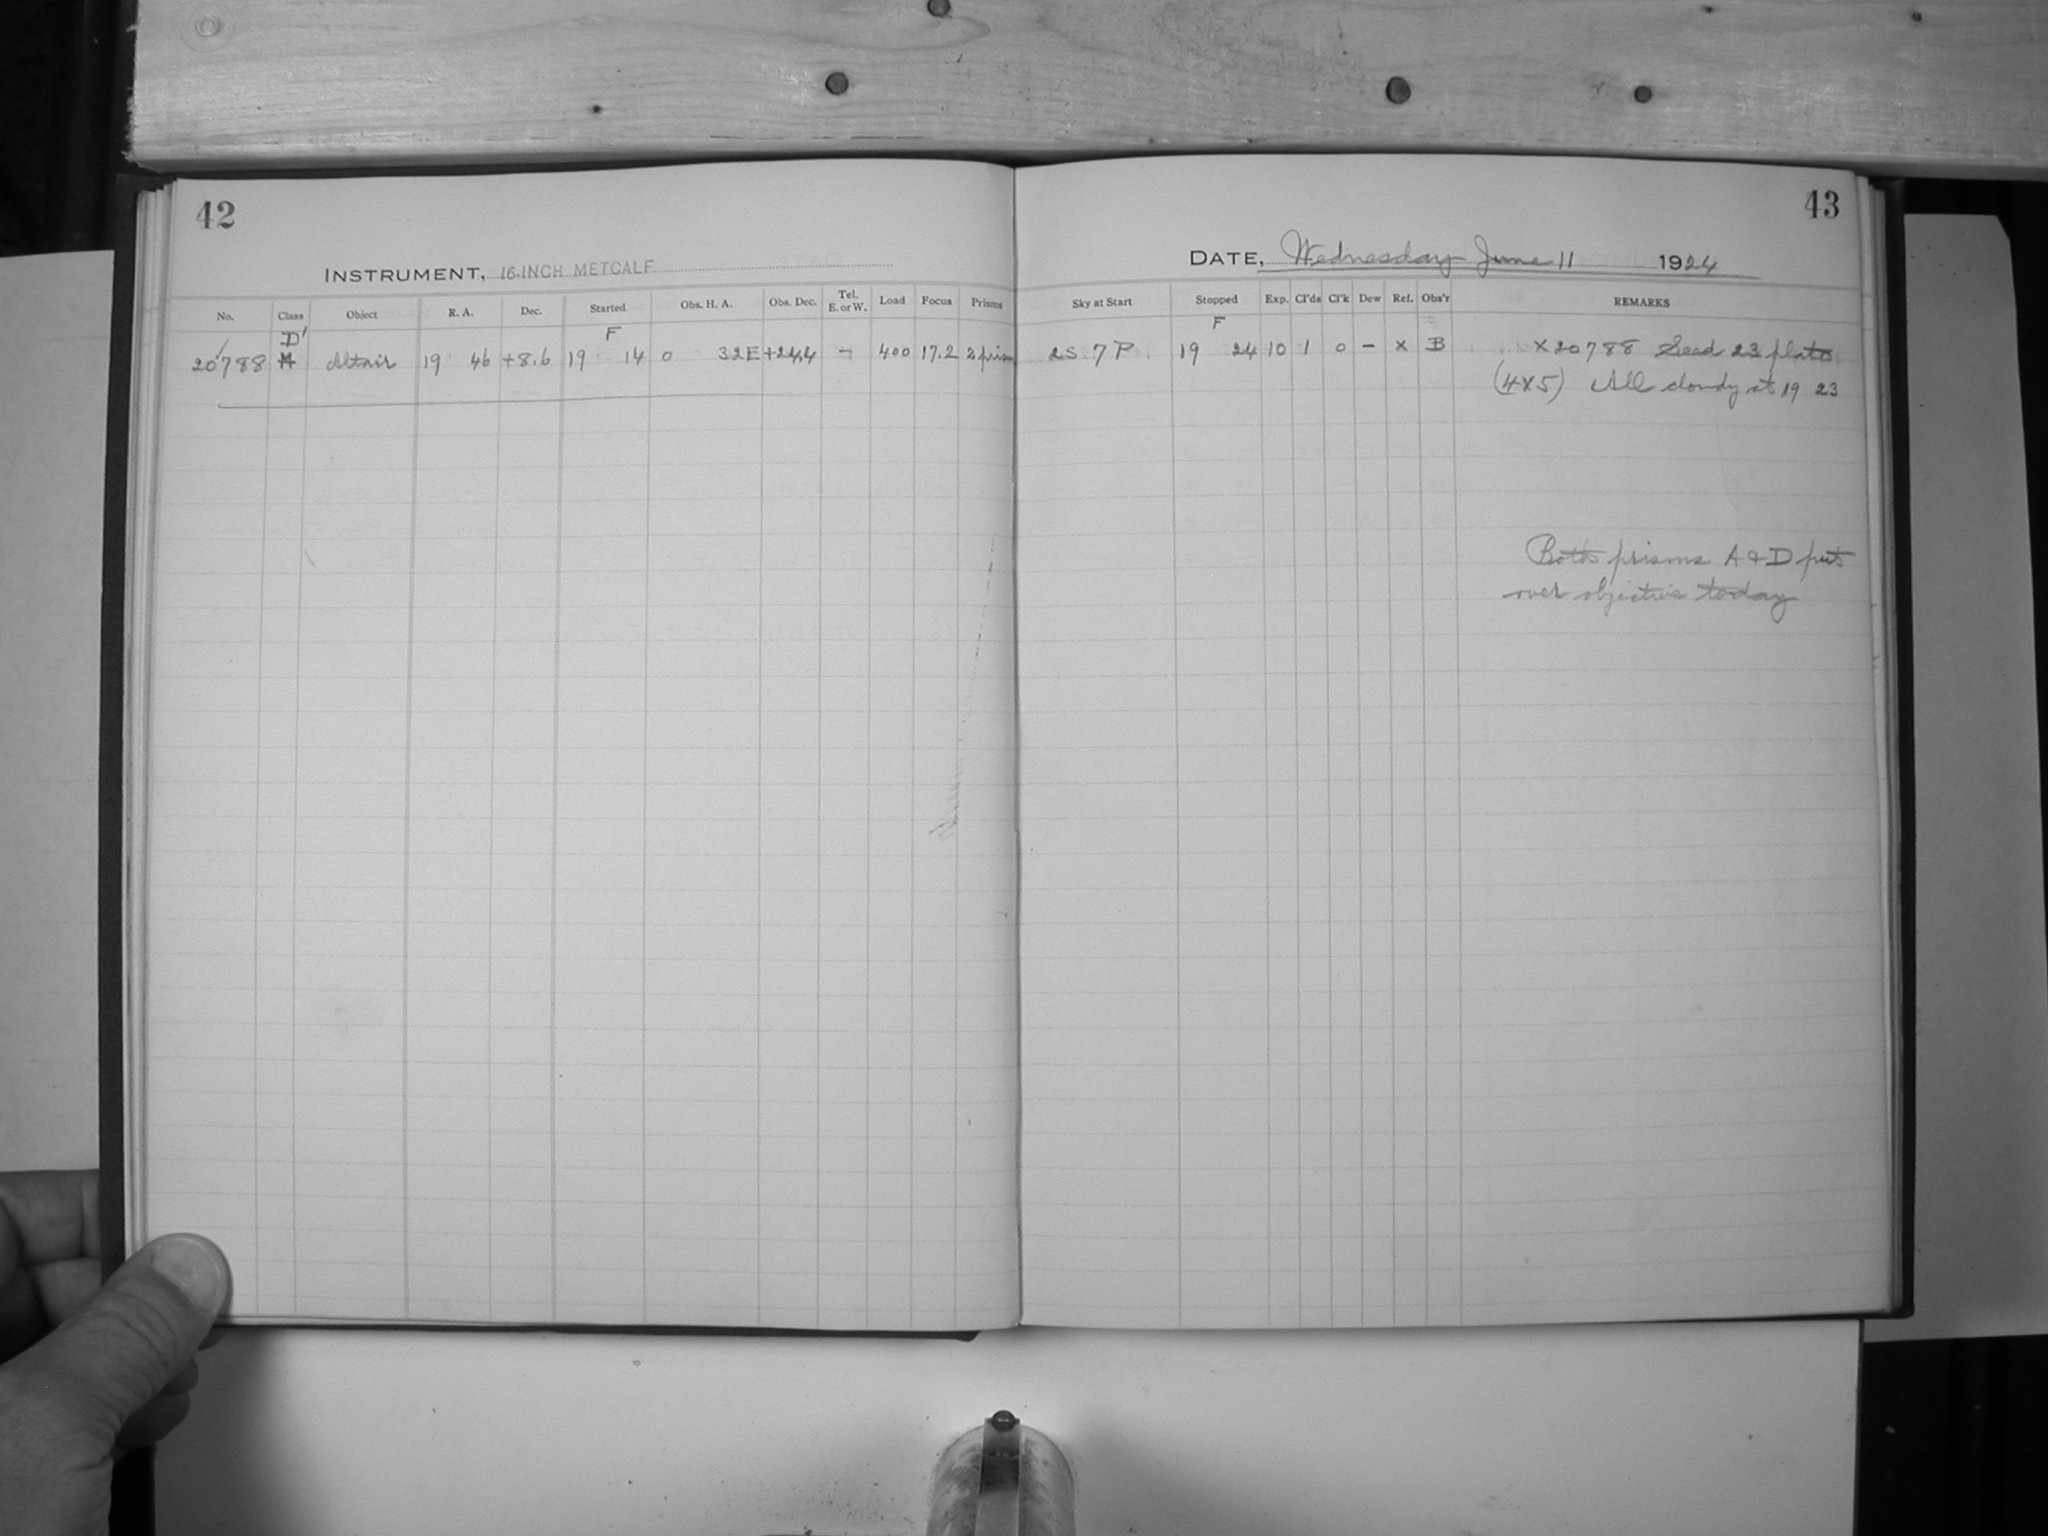 42
INSTRUMENT, 16-INCH METCALF
No. Class Object R. A. Dec. Started Obs. H. A. Obs. Dec. Tel. E. or W. Load Focus Prisms
D' F
20788 Altair 19 46 +8.6 19 14 0 32E +24.4 - 400 17.2 2 prism
43
DATE, Wednesday June 11 1924
Sky at Start Stopped Exp. Cl'ds Cl'k Dew Ref. Obs'r REMARKS
F
2S 7 P. 19 24 10 1 0 - x B x 20788 Seed 23 plate
(4x5) All cloudy at 19 23
Both prisms A & D put
over objective today